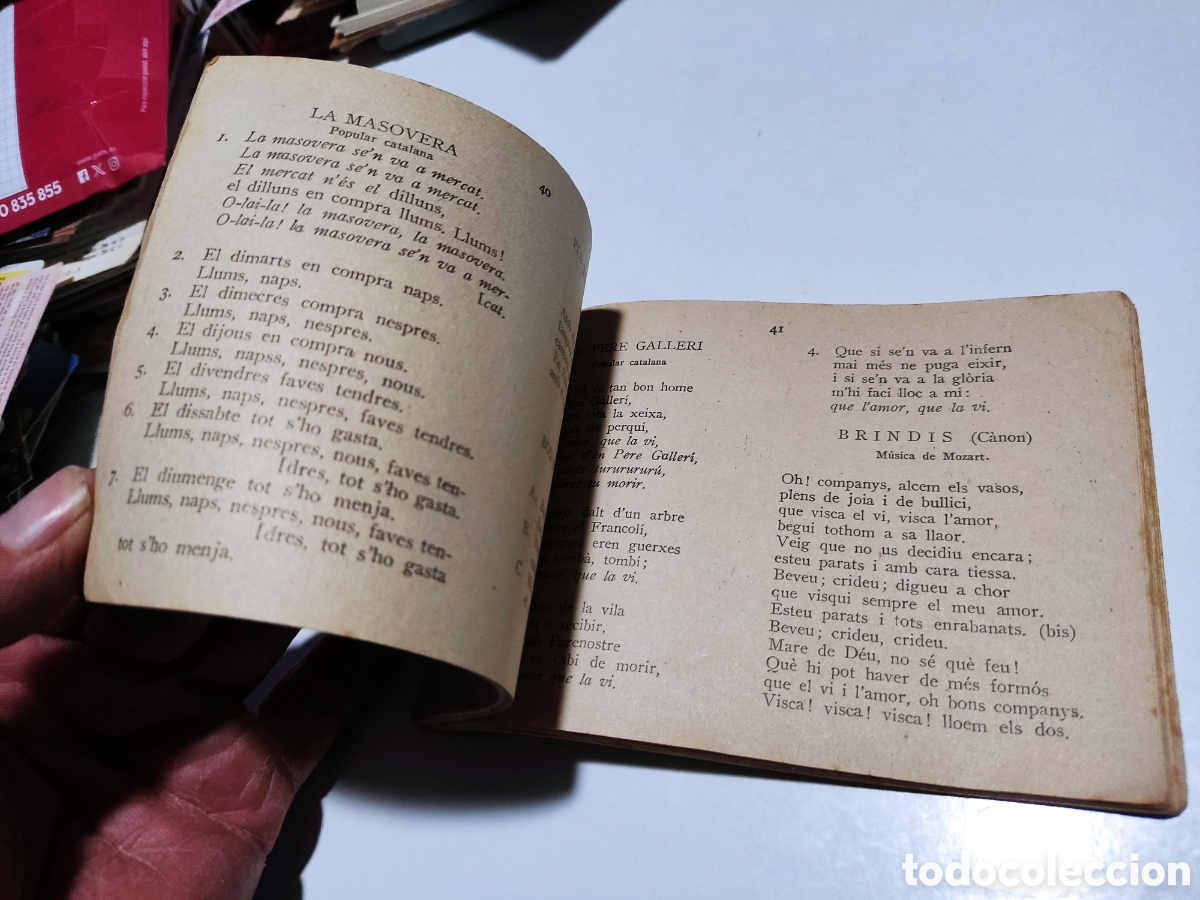 835 855
40
LA MASOVERA
Popular catalana
1. La masovera se'n va a mercat.
La masovera se'n va a mercat.
El mercat n'és el dilluns,
el dilluns en compra llums. Llums!
O-lai-la! la masovera, la masovera.
O-lai-la! la masovera se'n va a mer-
[cat.
2. El dimarts en compra naps.
Llums, naps.
3. El dimecres compra nespres.
Llums, naps, nespres.
4. El dijous en compra nous.
Llums, napss, nespres, nous.
5. El divendres faves tendres.
Llums, naps, nespres, faves tendres.
6. El dissabte tot s'ho gasta.
Llums, naps, nespres, nous, faves ten-
[dres, tot s'ho gasta.
7. El diumenge tot s'ho menja.
Llums, naps, nespres, nous, faves ten-
[dres, tot s'ho gasta
tot s'ho menja.
41
PERE GALLERI
Popular catalana
tan bon home
Gallerí,
tota la xeixa,
de perquí,
que la vi,
d'en Pere Gallerí,
turururururú,
tu morir.
dalt d'un arbre
el Francolí,
eren guerxes
tombà, tombí;
que la vi.
de la vila
a rècibir,
Parenostre
cabi de morir,
que la vi.
4. Que si se'n va a l'infern
mai més ne puga eixir,
i si se'n va a la glòria
m'hi faci lloc a mi:
que l'amor, que la vi.
BRINDIS (Cànon)
Música de Mozart.
Oh! companys, alcem els vasos,
plens de joia i de bullici,
que visca el vi, visca l'amor,
begui tothom a sa llaor.
Veig que no us decidiu encara;
esteu parats i amb cara tiessa.
Beveu; crideu; digueu a chor
que visqui sempre el meu amor.
Esteu parats i tots enrabanats. (bis)
Beveu; crideu, crideu.
Mare de Déu, no sé què feu!
Què hi pot haver de més formós
que el vi i l'amor, oh bons companys.
Visca! visca! visca! lloem els dos.
todocoleccion